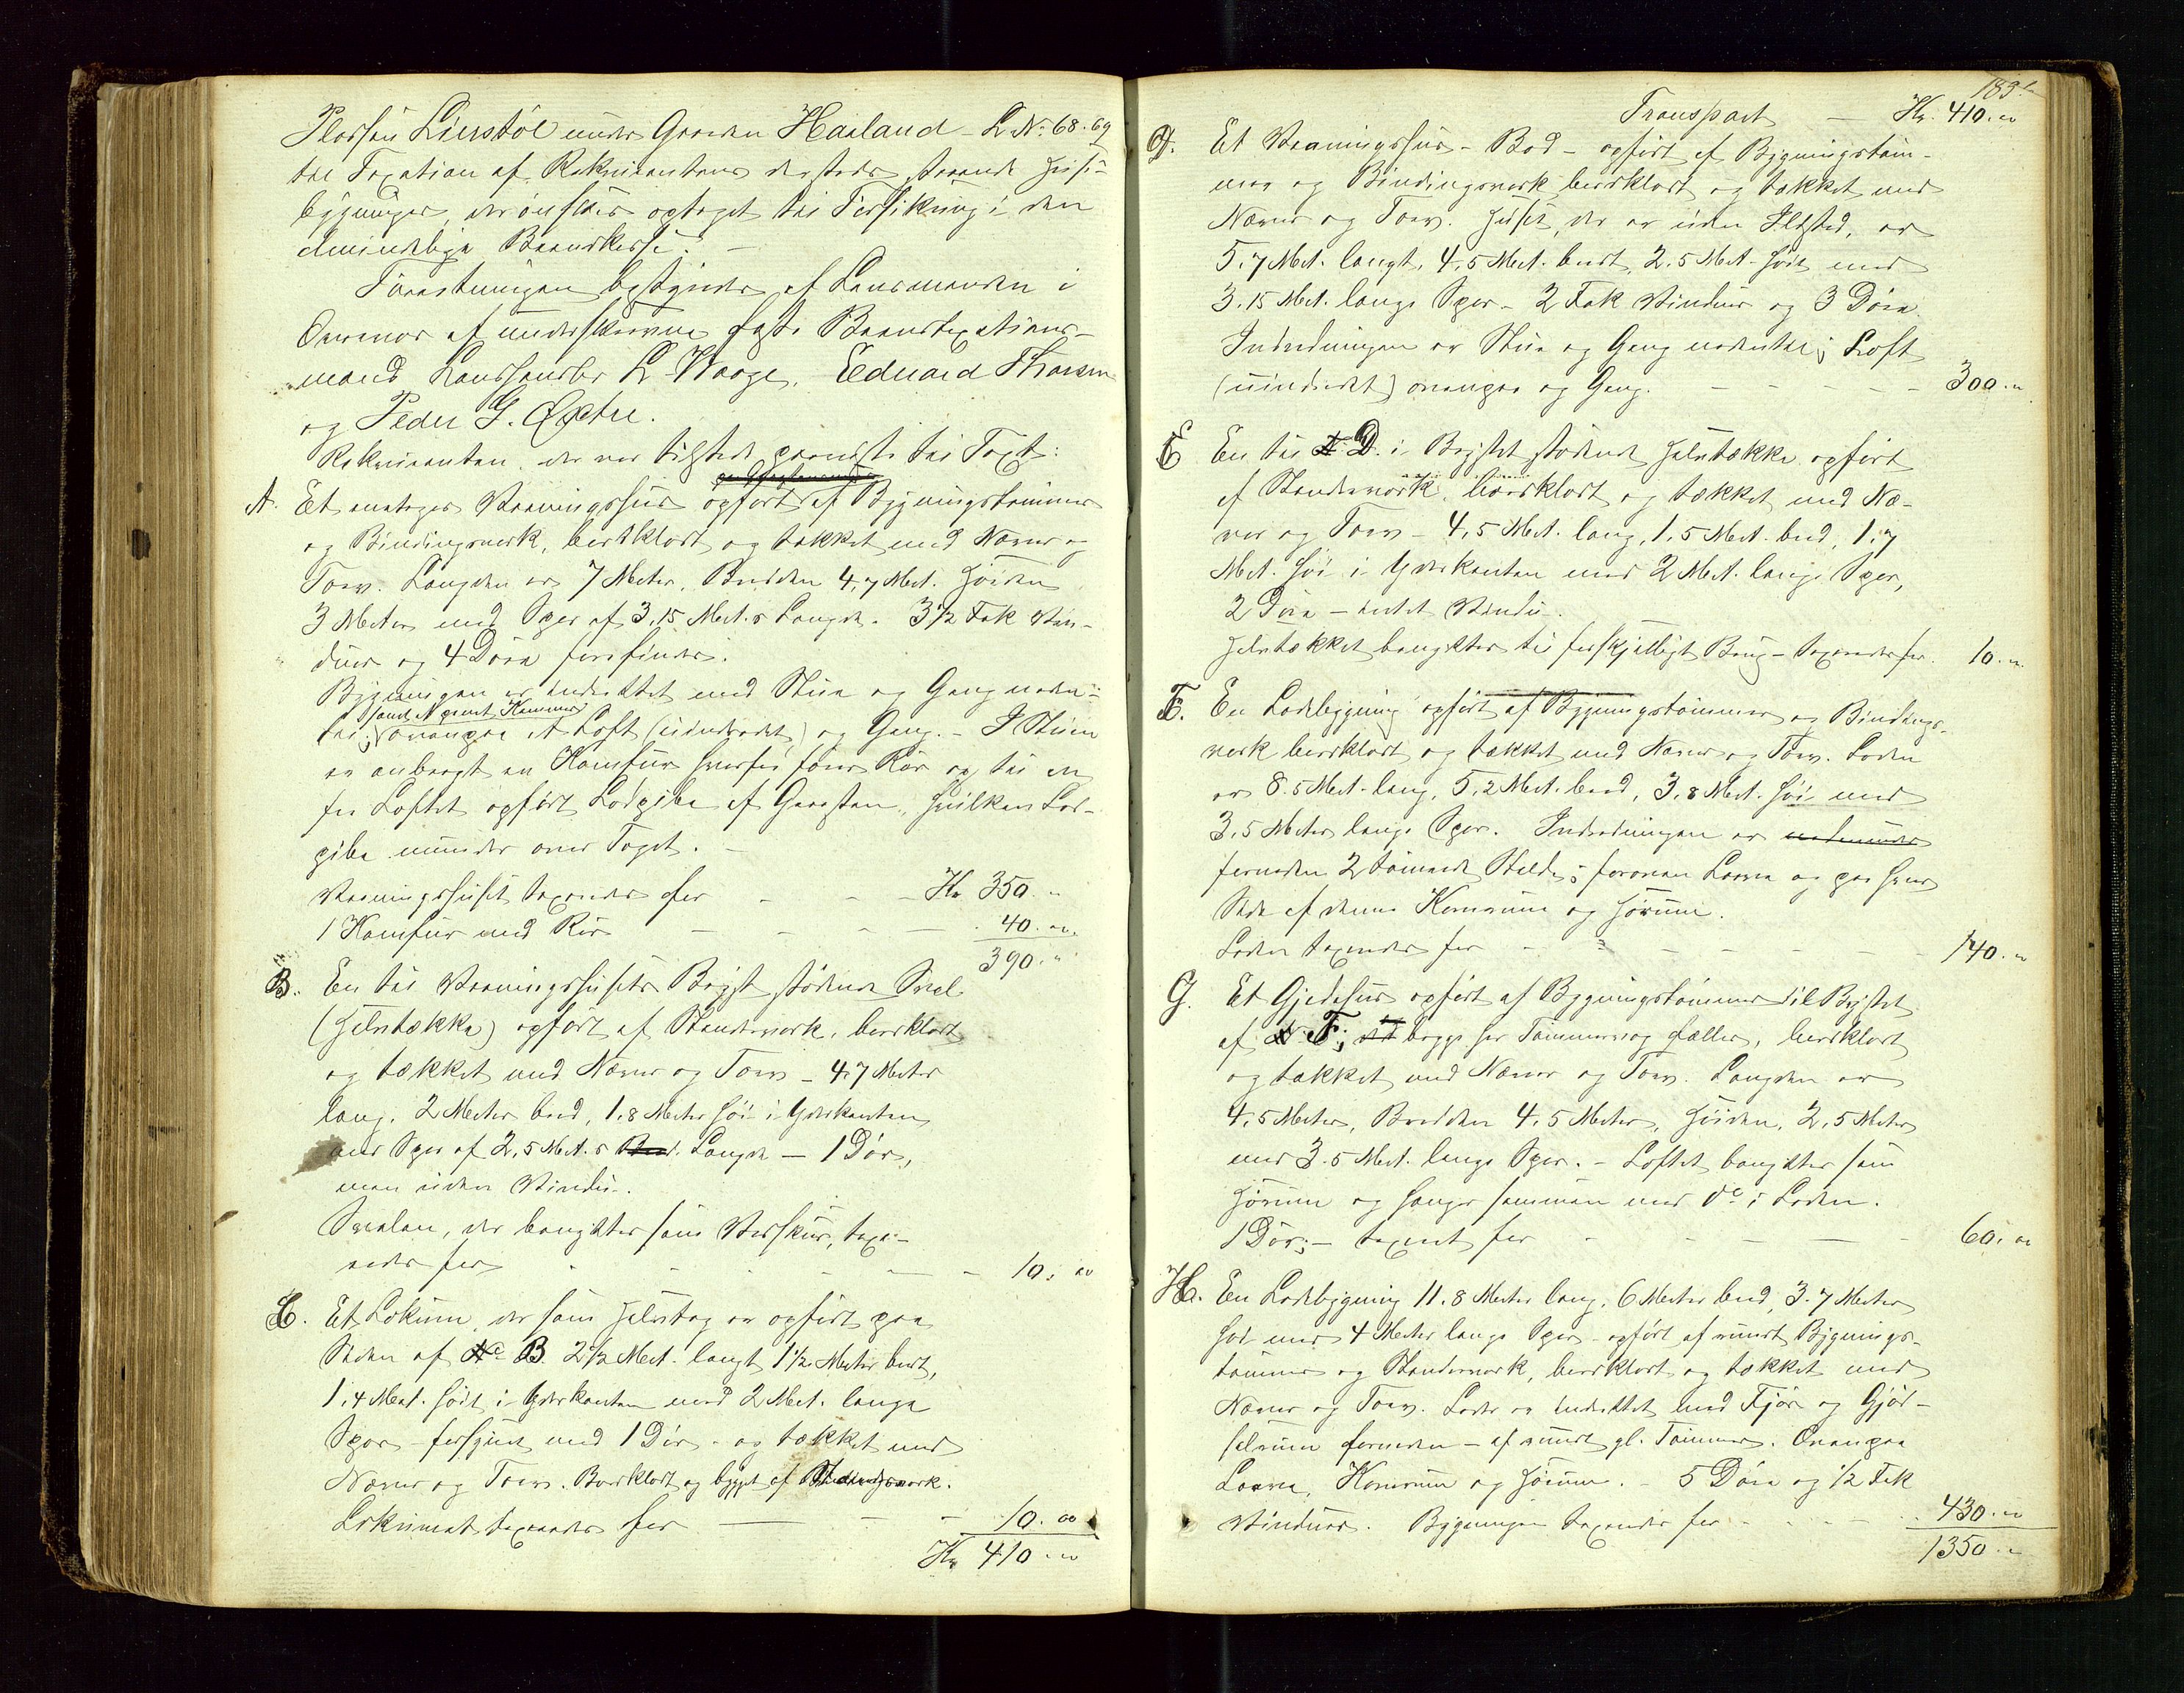 Pladsen Lierstöl under Gaarden Haaland - L.No. 68.69
til Taxation af Rekvirentens dersteds staaende Huse-
bygninger, der ønskes optaget til Forsikring i den
almindelige Brandkasse. -
Forretningen bestyredes af Lensmanden i
Overvær af underskrevne faste Brandtaxations-
mænd Handelsmand L. Waage, Eduard Thorsen
og Peder G. Øxtre.
Rekvirenten, der var tilstede paaviste til Taxt:
A. Et enetages Vaaningshus opført af Bygningstømmer
og Bindingsverk, bordklædt og tækket med Næver og
Torv. Længden er 7 Meter, Bredden 4,7 Met. Høiden
3 Meter med Sper af 3,15 Met.s Længde. 3 1/2 Fak Vin-
duer og 4 Döre forefindes.
Bygningen er indrettet med Stue og Gang neden-
samt et panelt Kammer
til; ovenpaa et Loft (uindredet) og Gang. - I Stuen
er anbragt en Komfur hvorfra fører Rör op til en
fra Loftet opført Lodpibe af Graasten, hvilken Lod-
pibe munder over Taget. -
Vaaningshuset taxeredes for - - - Kr. 350. "
1 Komfur med Rör - - - - 40. oo.
390. "
B. En til Vaaningshusets Bryst stødende Sval
(Halvtække) opført af Standerverk, bordklædt
og tækket med Næver og Torv - 4,7 Meter
lang, 2 Meter bred, 1,8 Meter høi i Yderkanten
med Sper af 2,5 Met.s Længde - 1 Dör,
men uden Vindu.
Svalen, der benyttes som Vedskur, taxe-
redes for - - - - - 10. oo
C. Et Lokum, der som Halvtag er opført paa
Siden af B. 2 1/2 Met. langt 1 1/2 Meter bredt,
1,4 Met. høit i Yderkanten med 2 Met. lange
Sper - forsynet med 1 Dör - og tækket med
Næver og Torv. Bordklædt og bygget af Standerverk.
Lokumet taxeredes for - - - 10. oo
Kr. 410. oo
183.
Transport - Kr. 410. oo
D. Et Vaaningshus - Bod - opført af Bygningstøm-
mer og Bindingsverk bordklædt og tækket med
Næver og Torv. Huset, der er uden Ildsted, er
5,7 Met. langt, 4,5 Met. bredt, 2,5 Met. høit med
3,15 Met. lange Sper - 2 Fak Vinduer og 3 Döre.
Indredningen er Stue og Gang nedentil; Loft
(uindredet) ovenpaa og Gang. - - - - 300. "
E En til D. i Brystet stødende Halvtække opført
af Standerverk, bordklædt og tækket med Næ-
ver og Torv - 4,5 Met. lang, 1,5 Met. bred, 1,7
Met. høi i Yderkanten med 2 Met. lange Sper,
2 Döre - intet Vindu.
Halvtækket benyttes til forskjelligt Brug - taxeredes for. 10. "
F. En Ladebygning opført af Bygningstømmer og Bindings-
verk bordklædt og tækket med Næver og Torv. Laden
er 8.5 Met. lang, 5,2 Met. bred, 3,8 Met. høi med
3,5 Meter lange Sper. Indredningen er
forneden 2 tømrede Stalde; foroven Laave og paa hver
Side af denne Kornrum og Hørum.
Laden taxeredes for - - - - - - 140. "
G. Et Gjedehus opført af Bygningstømmer til Brystet
af F; begge har Tømmervæg fælles, bordklædt
og tækket med Næver og Torv. Længden er
4,5 Meter, Bredden 4,5 Meter, Høiden, 2,5 Meter
med 3.5 Met. lange Sper. - Loftet benyttes som
Hørum og hænger sammen med do i Laden.
1 Dör; - taxeret for - - - - 60. oo
H. En Ladebygning 11.8 Meter lang, 6 Meter bred, 3.7 Meter
høi med 4 Meter lange Sper - opført af rundt Bygnings-
tømmer og Standerverk, bordklædt og tækket med
Næver og Torv. Laden er indrettet med Fjøs og Gjød-
selrum forneden - af rundt gl. Tømmer. Ovenpaa
Laave, Kornrum og Hørum. - 5 Döre og 1/2 Fak
Vinduer. Bygningen taxeredes for - - - 430. "
1350. "